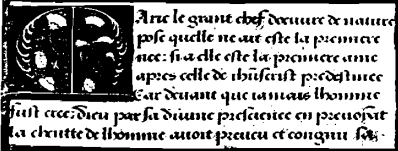 Arie le grant chef doeuure de nature
pose quelle ne ait este la premiere
nee: si a elle este la premiere ame
apres celle de ihuscrist predestinee
Car deuant que iamais lhomme
fust cree: dieu par sa diuine prescience en preuoiant
la cheutte de lhomme auoit preueu et congnu sa